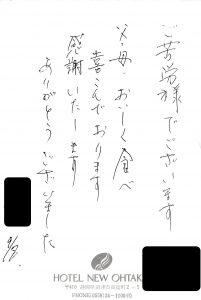 ご苦労様でございます
父・母、おいしく食べ
喜こんでおります
感謝いたします
ありがとうございました
HOTEL NEW OHTAK